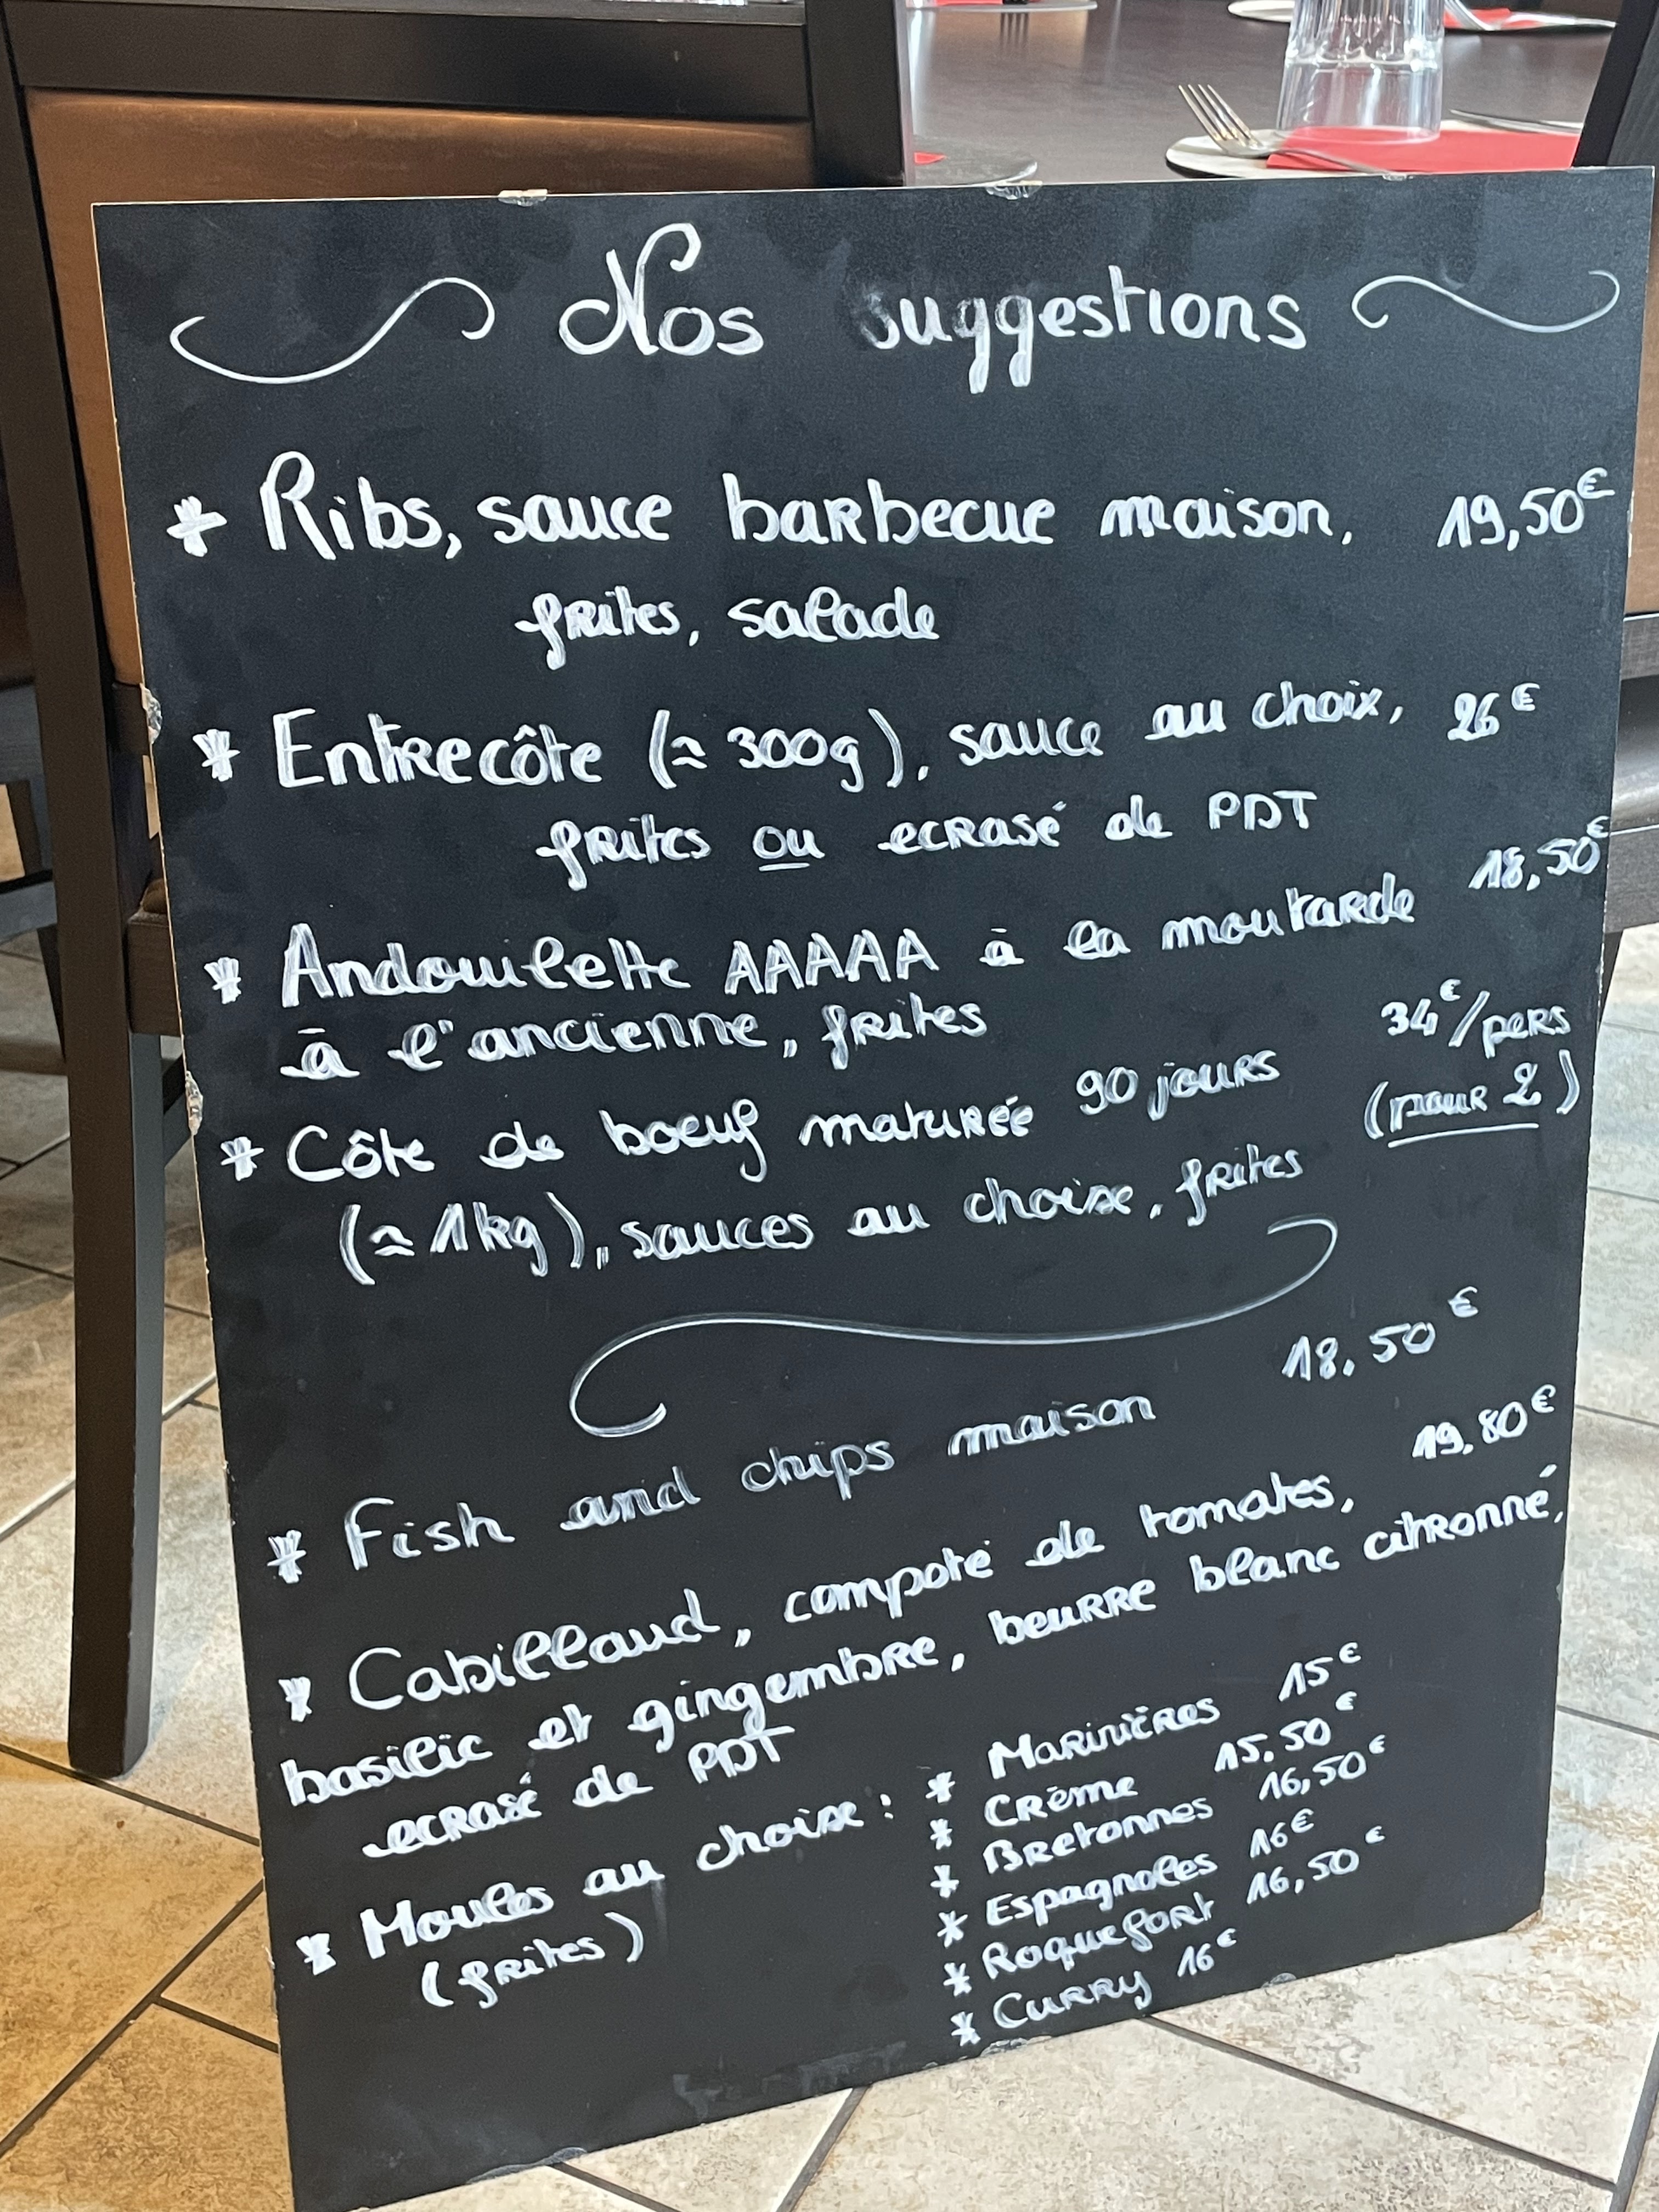 Nos suggestions
* Ribs, sauce barbecue maison, 19,50€
frites, salade
* Entrecôte (≈ 300g), sauce au choix, 26€
frites ou ecrasé de PDT
* Andouillette AAAAA à la moutarde 18,50€
à l'ancienne, frites
* Côte de boeuf maturée 90 jours 34€/pers
(≈ 1kg), sauces au choix, frites (pour 2)
* Fish and chips maison 18.50€
* Cabillaud, compoté de tomates, 19.80€
basilic et gingembre, beurre blanc citronné,
ecrasé de PDT
* Moules au choix :
(frites)
* Marinières 15€
* Crème 15.50€
* Bretonnes 16,50€
* Espagnoles 16€
* Roquefort 16,50€
* Curry 16€